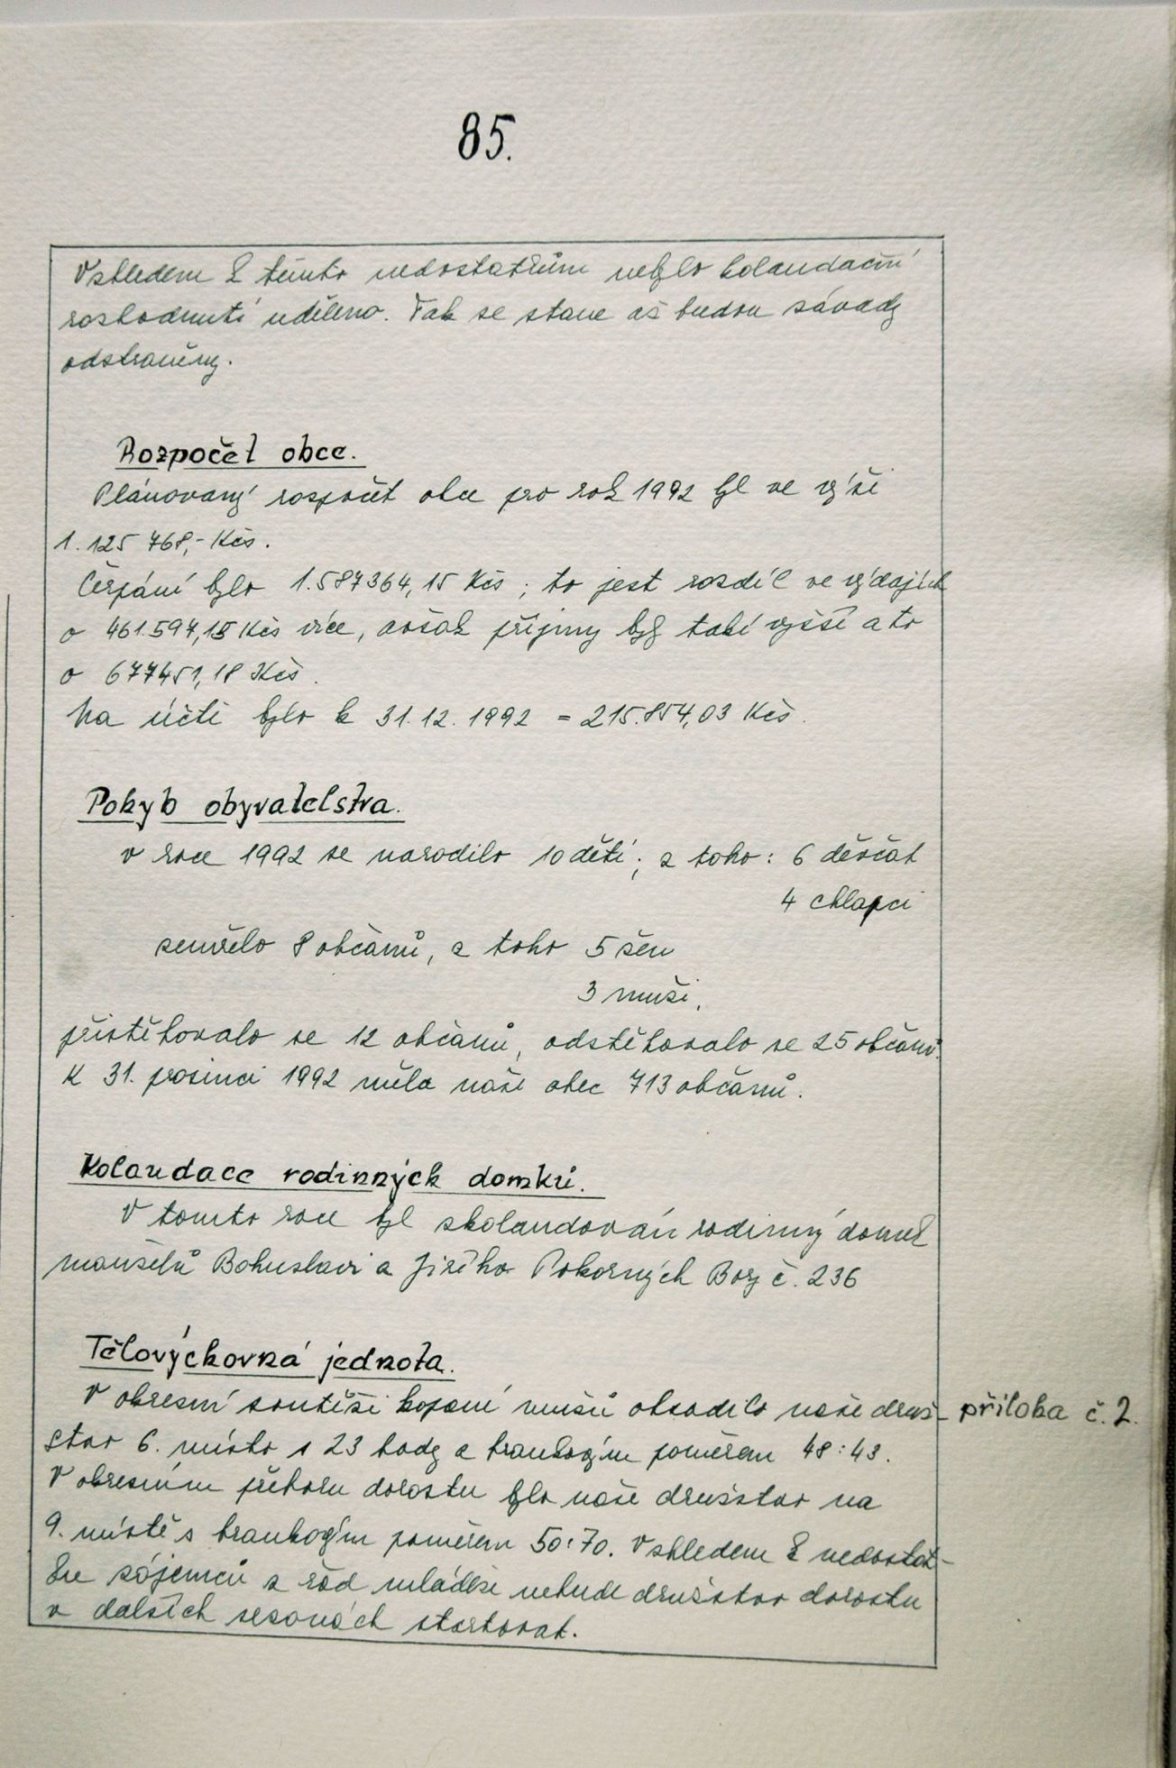 85.
Vzhledem k těmto nedostatkům nebylo kolaudační
rozhodnutí uděleno. Tak se stane až budou závady
odstraněny.
Rozpočet obce.
Plánovaný rozpočet obce pro rok 1992 byl ve výši
1.125 768,- Kčs.
Čerpání bylo 1.587364,15 Kčs; to jest rozdíl ve výdajích
o 461.597,15 Kčs více, avšak příjmy byly také vyšší a to
o 677451,18 Kčs.
Na účtě bylo k 31.12.1992 = 215.854,03 Kčs.
Pohyb obyvatelstva.
V roce 1992 se narodilo 10 dětí; z toho: 6 děvčat
4 chlapci
zemřelo 8 občanů, z toho 5 žen
3 muži.
přistěhovalo se 12 občanů, odstěhovalo se 25 občanů.
K 31. prosinci 1992 měla naše obec 713 občanů.
Kolaudace rodinných domků.
V tomto roce byl zkolaudován rodinný domek
manželů Bohuslavi a Jiřího Pokorných Bory č. 236
Tělovýchovná jednota.
V okresní soutěži kopané mužů obsadilo naše druž- příloha č. 2.
stvo 6. místo s 23 body a brankovým poměrem 48:43.
V okresním přeboru dorostu bylo naše družstvo na
9. místě s brankovým poměrem 50:70. Vzhledem k nedostat-
ku zájemců z řad mládeže nebude družstvo dorostu
v dalších sezonách startovat.